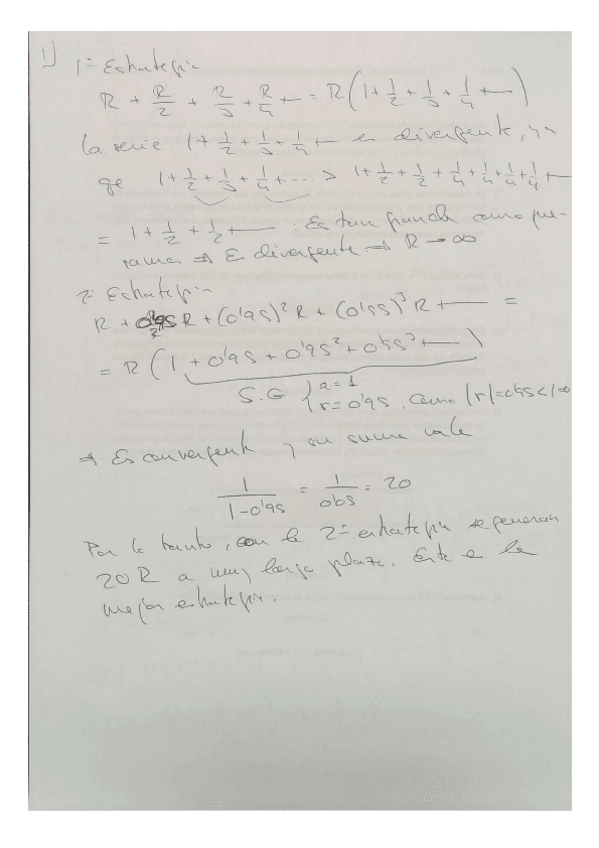 1)
1ª Estrategia
R + R/2 + R/3 + R/4 + — = R(1 + 1/2 + 1/3 + 1/4 + —)
La serie 1 + 1/2 + 1/3 + 1/4 + — es divergente, ya
que 1 + 1/2 + 1/3 + 1/4 + ... > 1 + 1/2 + 1/2 + 1/4 + 1/4 + 1/4 + 1/4 —
= 1 + 1/2 + 1/2 + — . Es tan grande como que-
ramos ⇒ Es divergente ⇒ R → ∞
2ª Estrategia
R + 0'95 R + (0'95)² R + (0'95)³ R + — =
= R (1 + 0'95 + 0'95² + 0'95³ + —)
S.G { a = 1
r = 0'95 . Como |r| = 0'95 < 1 ⇒
⇒ Es convergente y su suma vale
1/(1-0'95) = 1/0'05 = 20
Por lo tanto, con la 2ª estrategia se generan
20 R a muy largo plazo. Este es la
mejor estrategia.